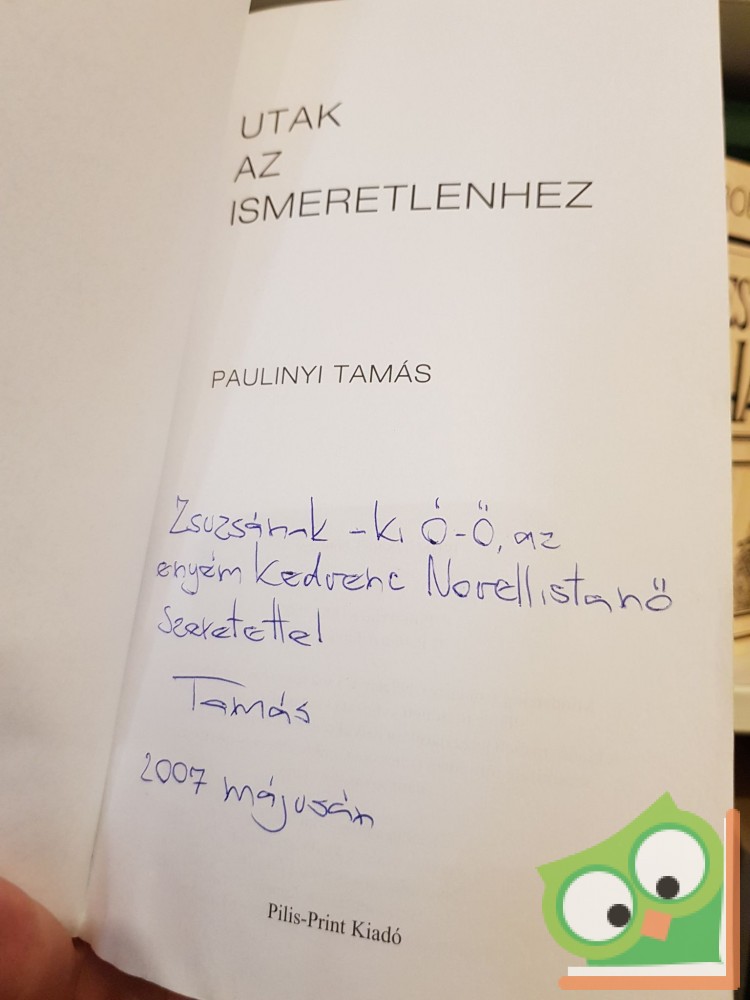 UTAK
AZ
ISMERETLENHEZ
PAULINYI TAMÁS
Zsuzsának - ki Ő-Ő, az
enyém Kedvenc Novellistanő
szeretettel
Tamás
2007 májusán
Pilis-Print Kiadó